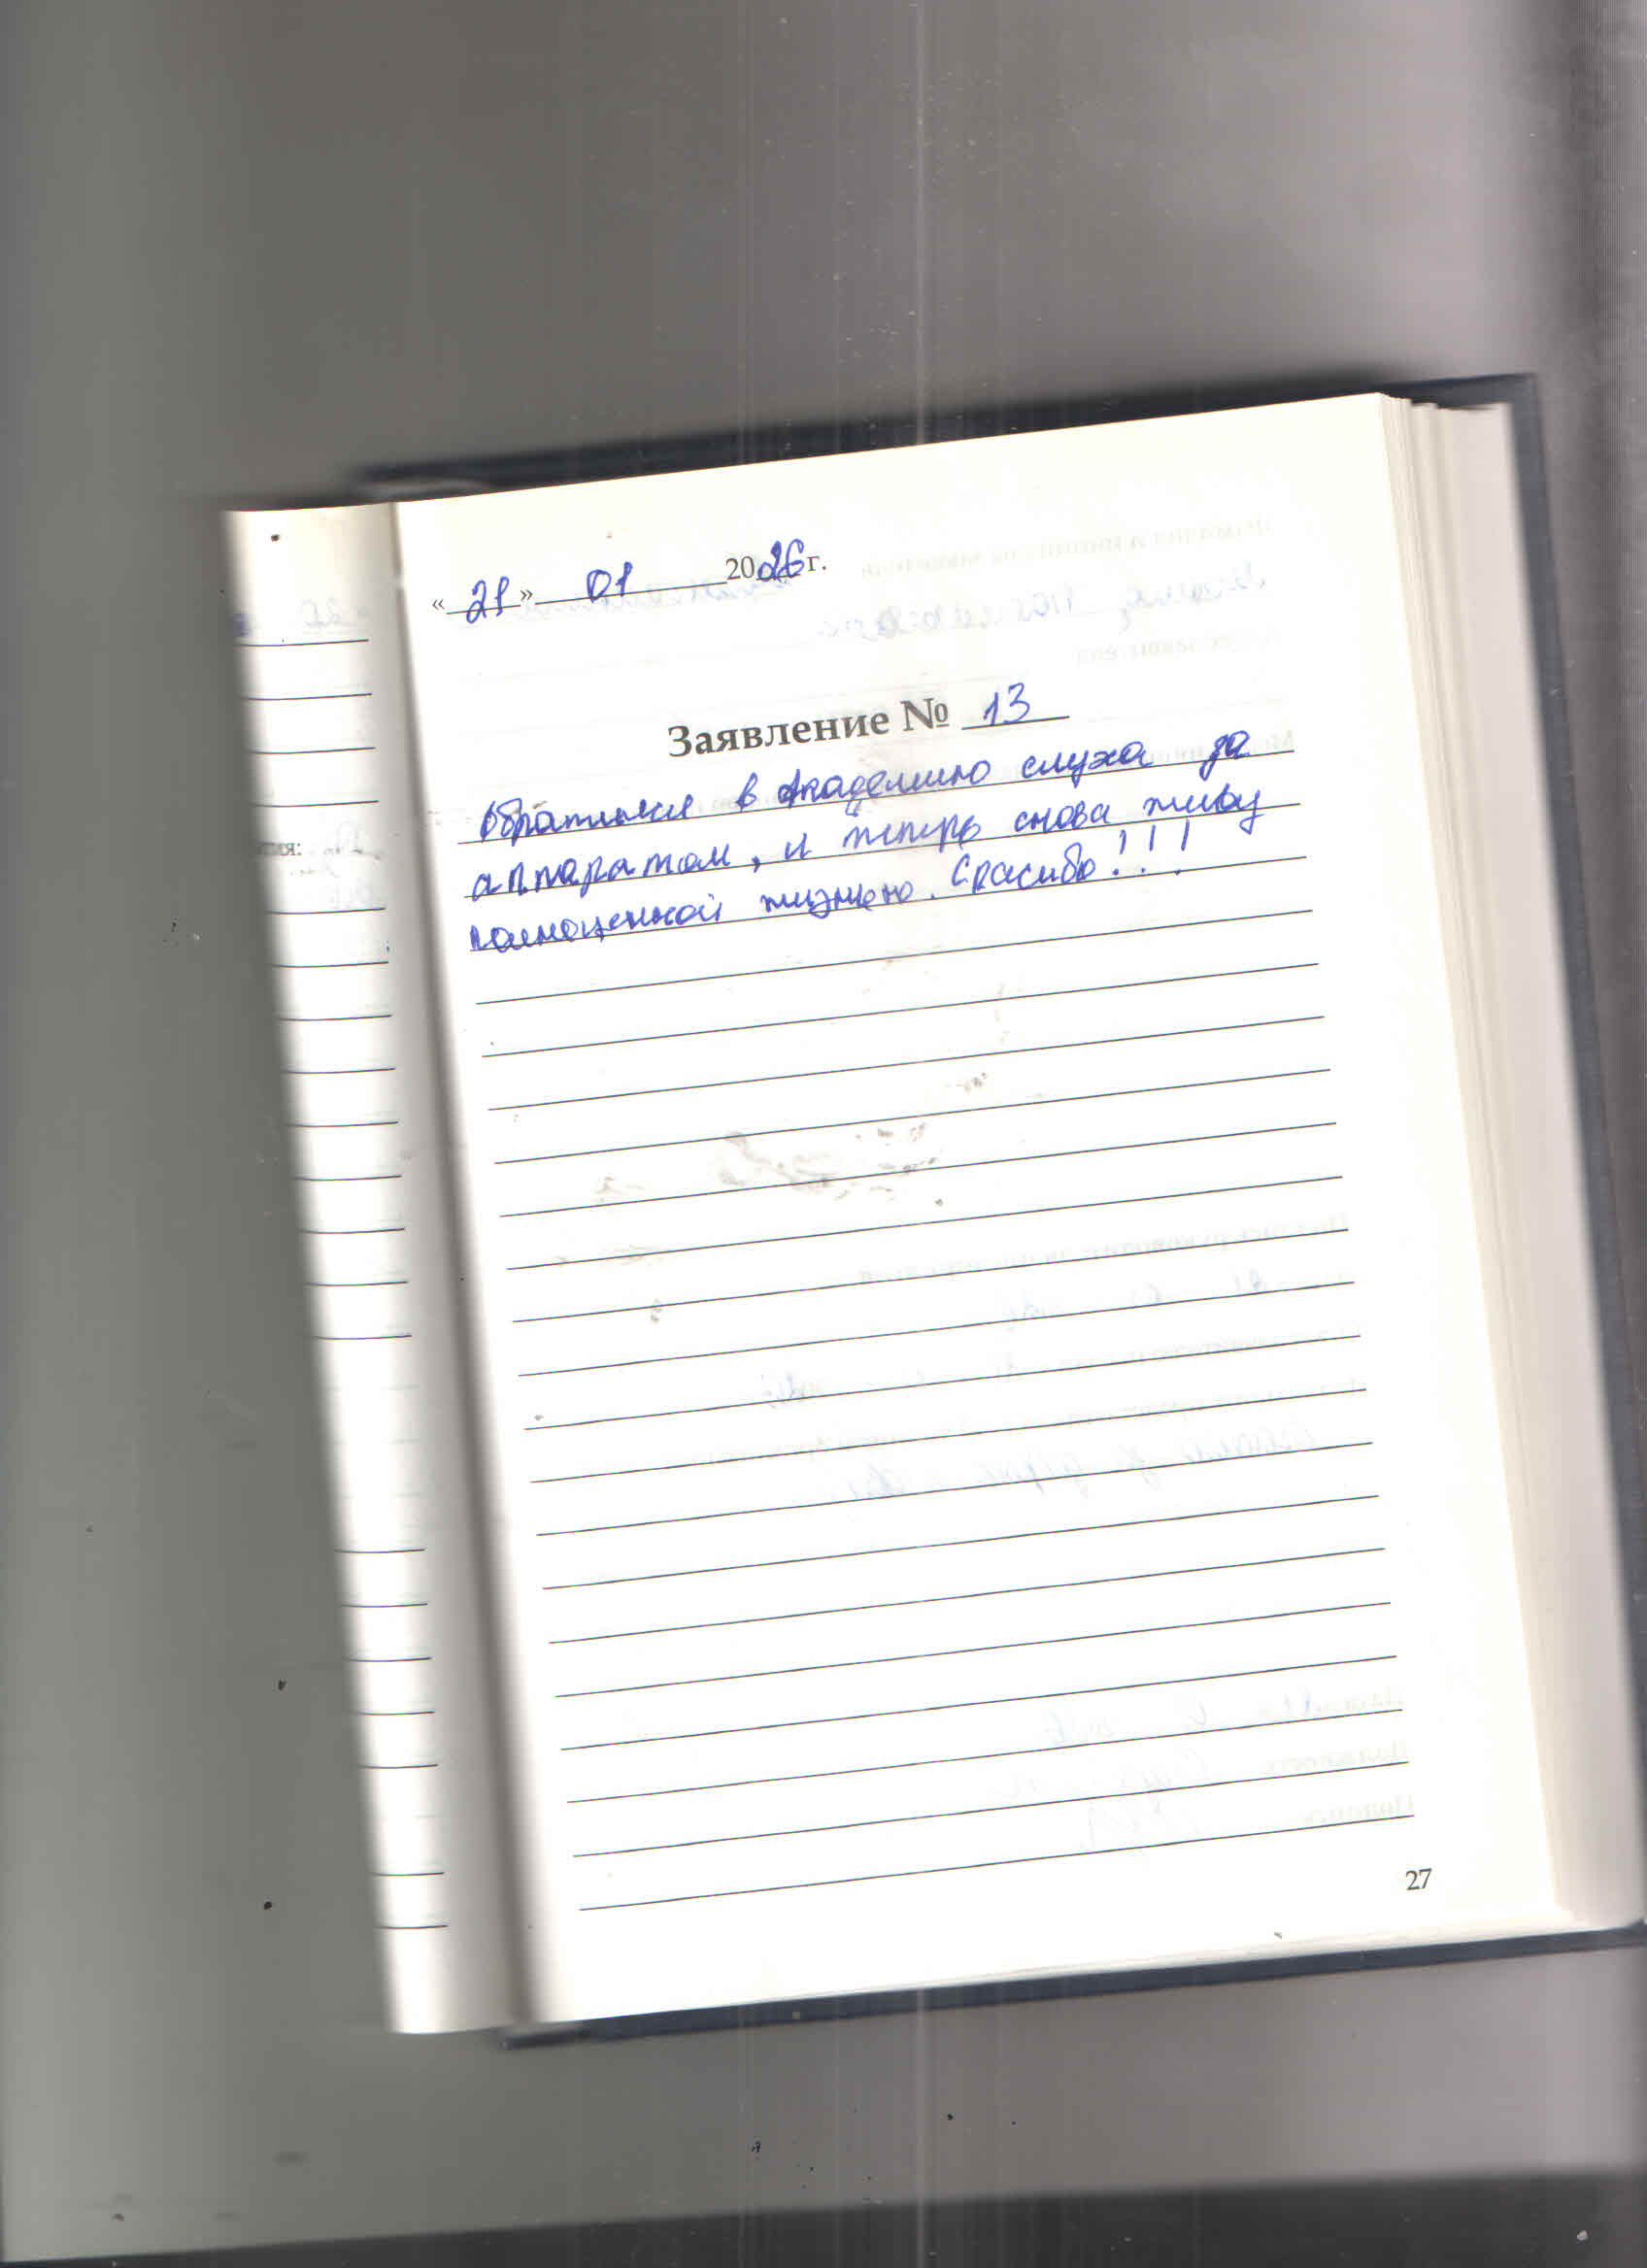 «21» 01 2026 г.
Заявление № 13
Обратился в Академию слуха за
аппаратом, и теперь снова живу
полноценной жизнью. Спасибо!!!
ия:
27